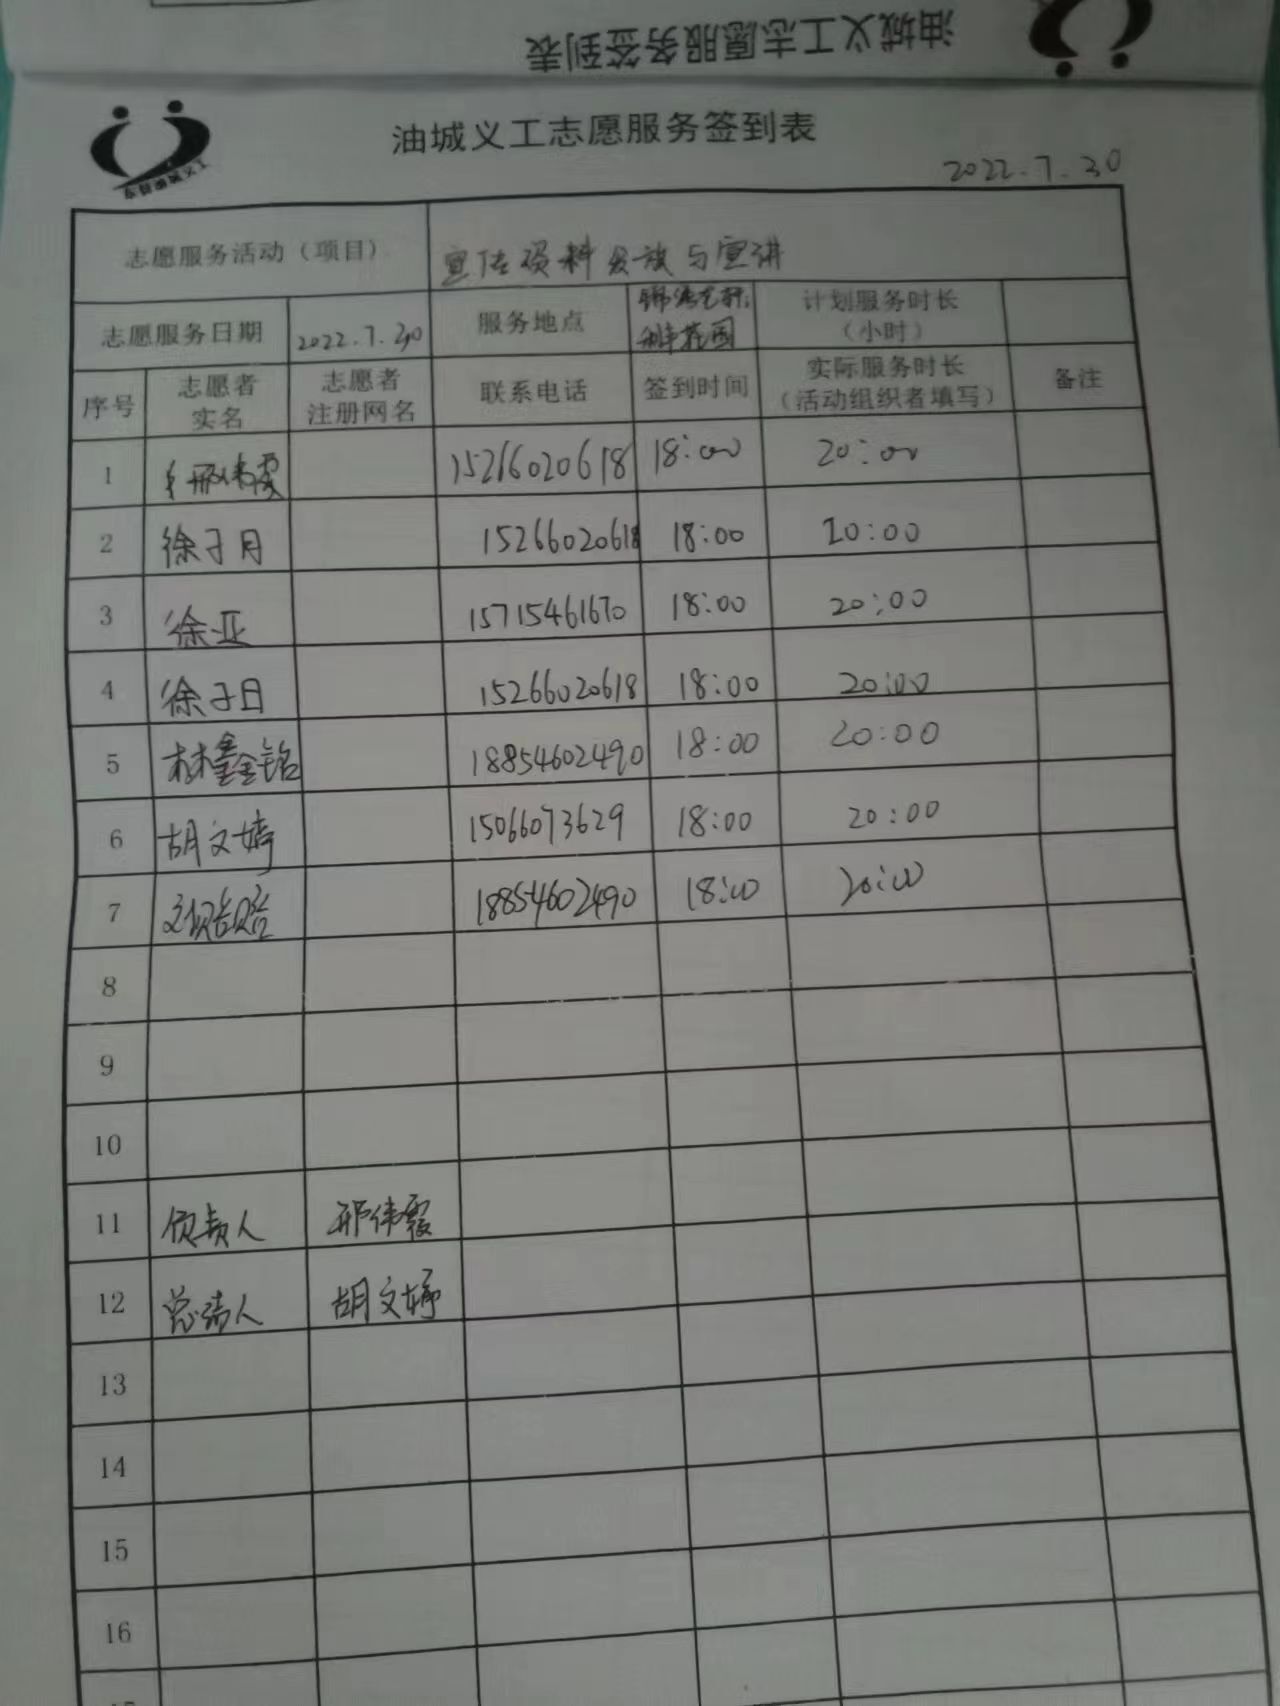 油城义工志愿服务签到表
油城义工志愿服务签到表
东营油城义工
2022.7.30
志愿服务活动（项目） 宣传资料发放与宣讲
志愿服务日期 2022.7.30 服务地点 花园 计划服务时长（小时）
序号 志愿者实名 志愿者注册网名 联系电话 签到时间 实际服务时长（活动组织者填写） 备注
1 邢伟霞 15266020618 18:00 20:00
2 徐子月 15266020618 18:00 20:00
3 徐亚 15715461670 18:00 20:00
4 徐子日 15266020618 18:00 20:00
5 林鑫铭 18854602490 18:00 20:00
6 胡文婷 15066073629 18:00 20:00
7 18854602490 18:00 20:00
8
9
10
11 负责人 邢伟霞
12 人 胡文婷
13
14
15
16
17